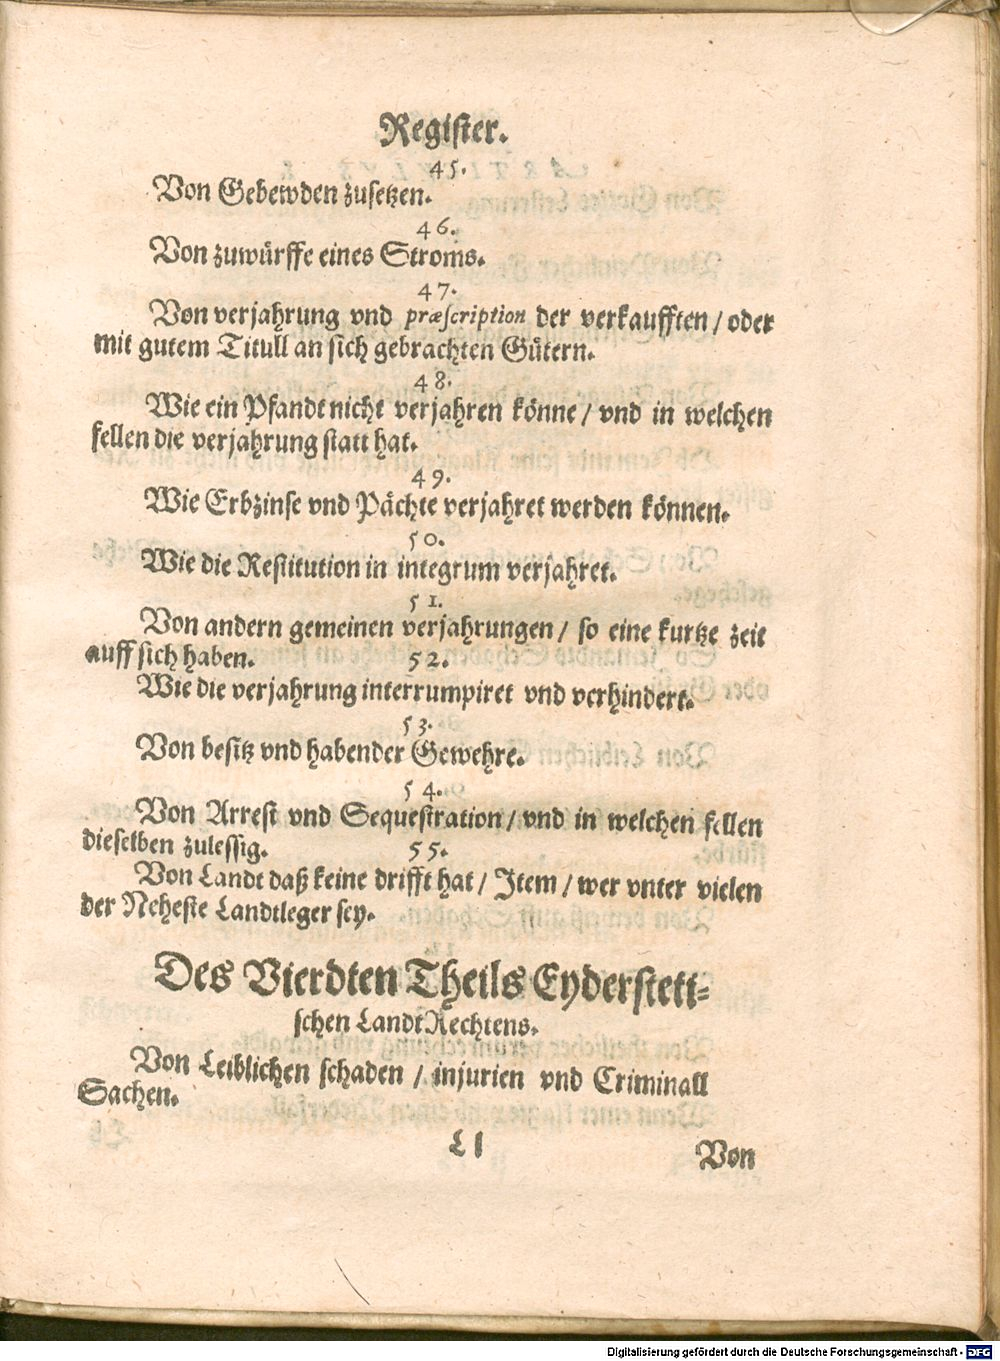 Register.
45.
Von Gebewden zusetzen.
46.
Von zuwürffe eines Stroms.
47.
Von verjahrung vnd præscription der verkaufften / oder
mit gutem Titull an sich gebrachten Gütern.
48.
Wie ein Pfandt nicht verjahren könne / vnd in welchen
fellen die verjahrung statt hat.
49.
Wie Erbzinse vnd Pächte verjahret werden können.
50.
Wie die Restitution in integrum verjahret.
51.
Von andern gemeinen verjahrungen / so eine kurtze zeit
auff sich haben. 52.
Wie die verjahrung interrumpiret vnd verhindert.
53.
Von besitz vnd habender Gewehre.
54.
Von Arrest vnd Sequestration / vnd in welchen fellen
dieselben zulessig. 55.
Von Landt daß keine drifft hat / Item / wer vnter vielen
der Neheste Landtleger sey.
Des Vierdten Theils Eydersteti-
schen LandtRechtens.
Von Leiblichen schaden / injurien vnd Criminall
Sachen.
Ll Von
Digitalisierung gefördert durch die Deutsche Forschungsgemeinschaft - DFG